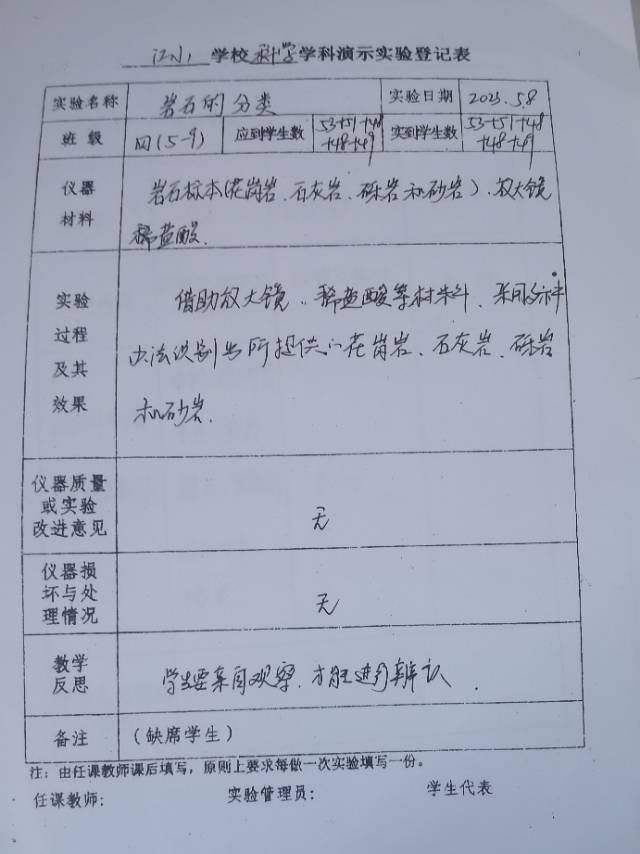 江小 学校 科学 学科演示实验登记表
实验名称 岩石的分类 实验日期 2023.5.8
班级 四(5-9) 应到学生数 53+51+48 实到学生数 53+51+48
+48+49 +48+49
仪器
材料
岩石标本(花岗岩、石灰岩、砾岩和砂岩)、放大镜
稀盐酸.
实验
过程
及其
效果
借助放大镜、稀盐酸等材料、采用
办法识别出所提供的花岗岩、石灰岩、砾岩
和砂岩.
仪器质量
或实验
改进意见
无
仪器损
坏与处
理情况
无
教学
反思
学生要亲自观察,才能进行辨认.
备注 (缺席学生)
注:由任课教师课后填写,原则上要求每做一次实验填写一份。
任课教师: 实验管理员: 学生代表